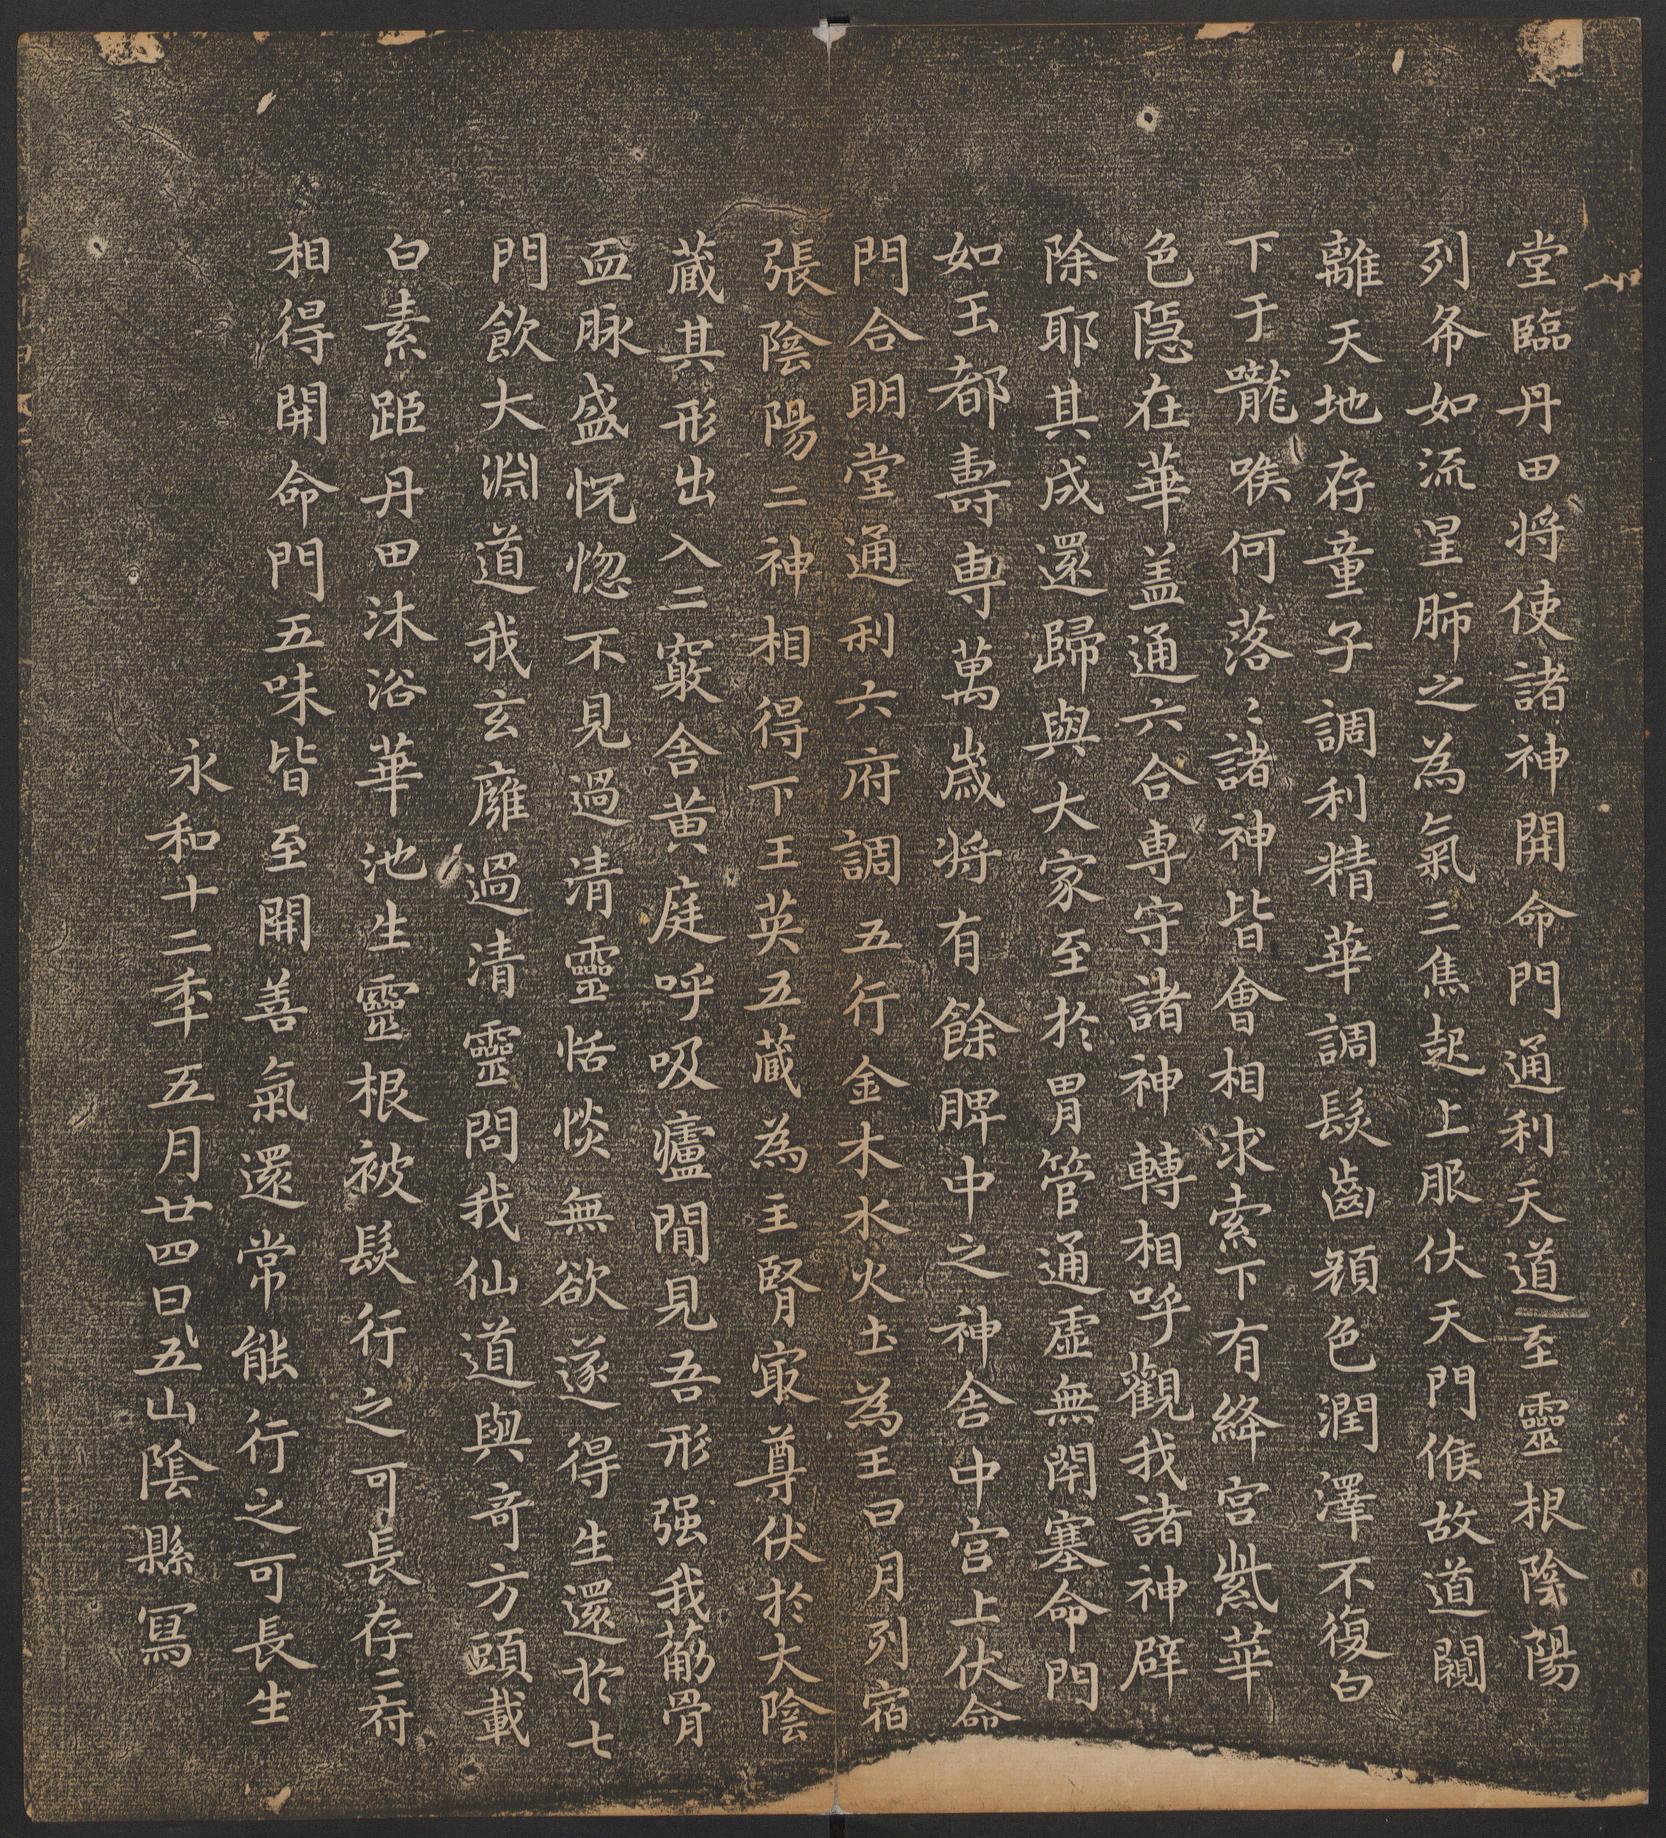 堂臨丹田將使諸神開命門通利天道至靈根陰陽
列布如流星肺之為氣三焦起上服伏天門候故道闚
離天地存童子調利精華調髮齒顏色潤澤不復白
下于嚨喉何落〻諸神皆會相求索下有絳宮紫華
色隱在華蓋通六合専守諸神轉相呼觀我諸神辟
除耶其成還歸與大家至於胃管通虛無閇塞命門
如玉都壽専萬歲将有餘脾中之神舍中宮上伏命
門合明堂通利六府調五行金木水火土為王日月列宿
張陰陽二神相得下王英五蔵為主腎冣尊伏於大陰
蔵其形出入二竅舍黄庭呼吸廬閒見吾形强我筋骨
血脉盛怳惚不見過清靈恬惔無欲遂得生還於七
門飲大淵道我玄廱過清靈問我仙道與奇方頭載
白素距丹田沐浴華池生靈根被髮行之可長存二府
相得開命門五味皆至開善氣還常能行之可長生
永和十二年五月廿四日五山陰縣寫